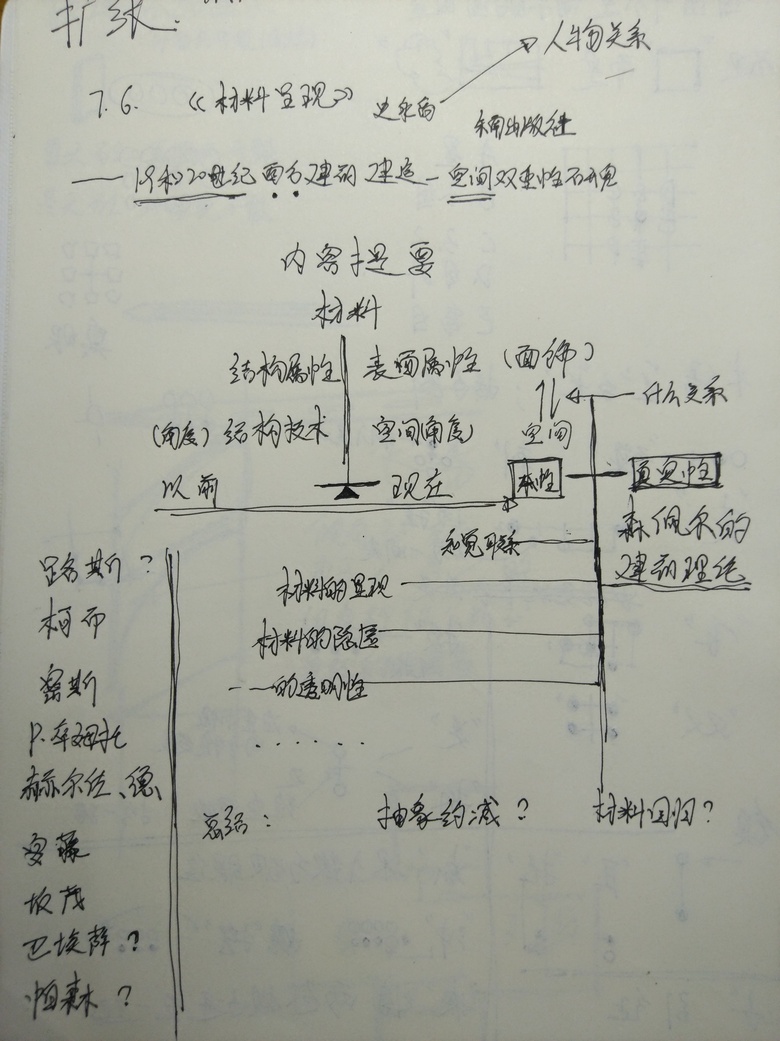 扩张:
人物关系
7.6. 《材料呈现》 史永高
东南出版社
—— 19和20世纪西方建筑建造—空间双重性研究
内容提要
材料
结构属性 表面属性 (面饰)
什么关系
(角度) 结构技术 空间角度) 空间
以前 现在 本性 真实性
森佩尔的
建筑理论
知觉联系
材料的呈现
材料的隐匿
——的透明性
......
路斯?
柯布
密斯
P.卒姆托
赫尔佐、德、
安藤
坂茂
巴埃萨?
帕森?
总结: 抽象约减? 材料回归?